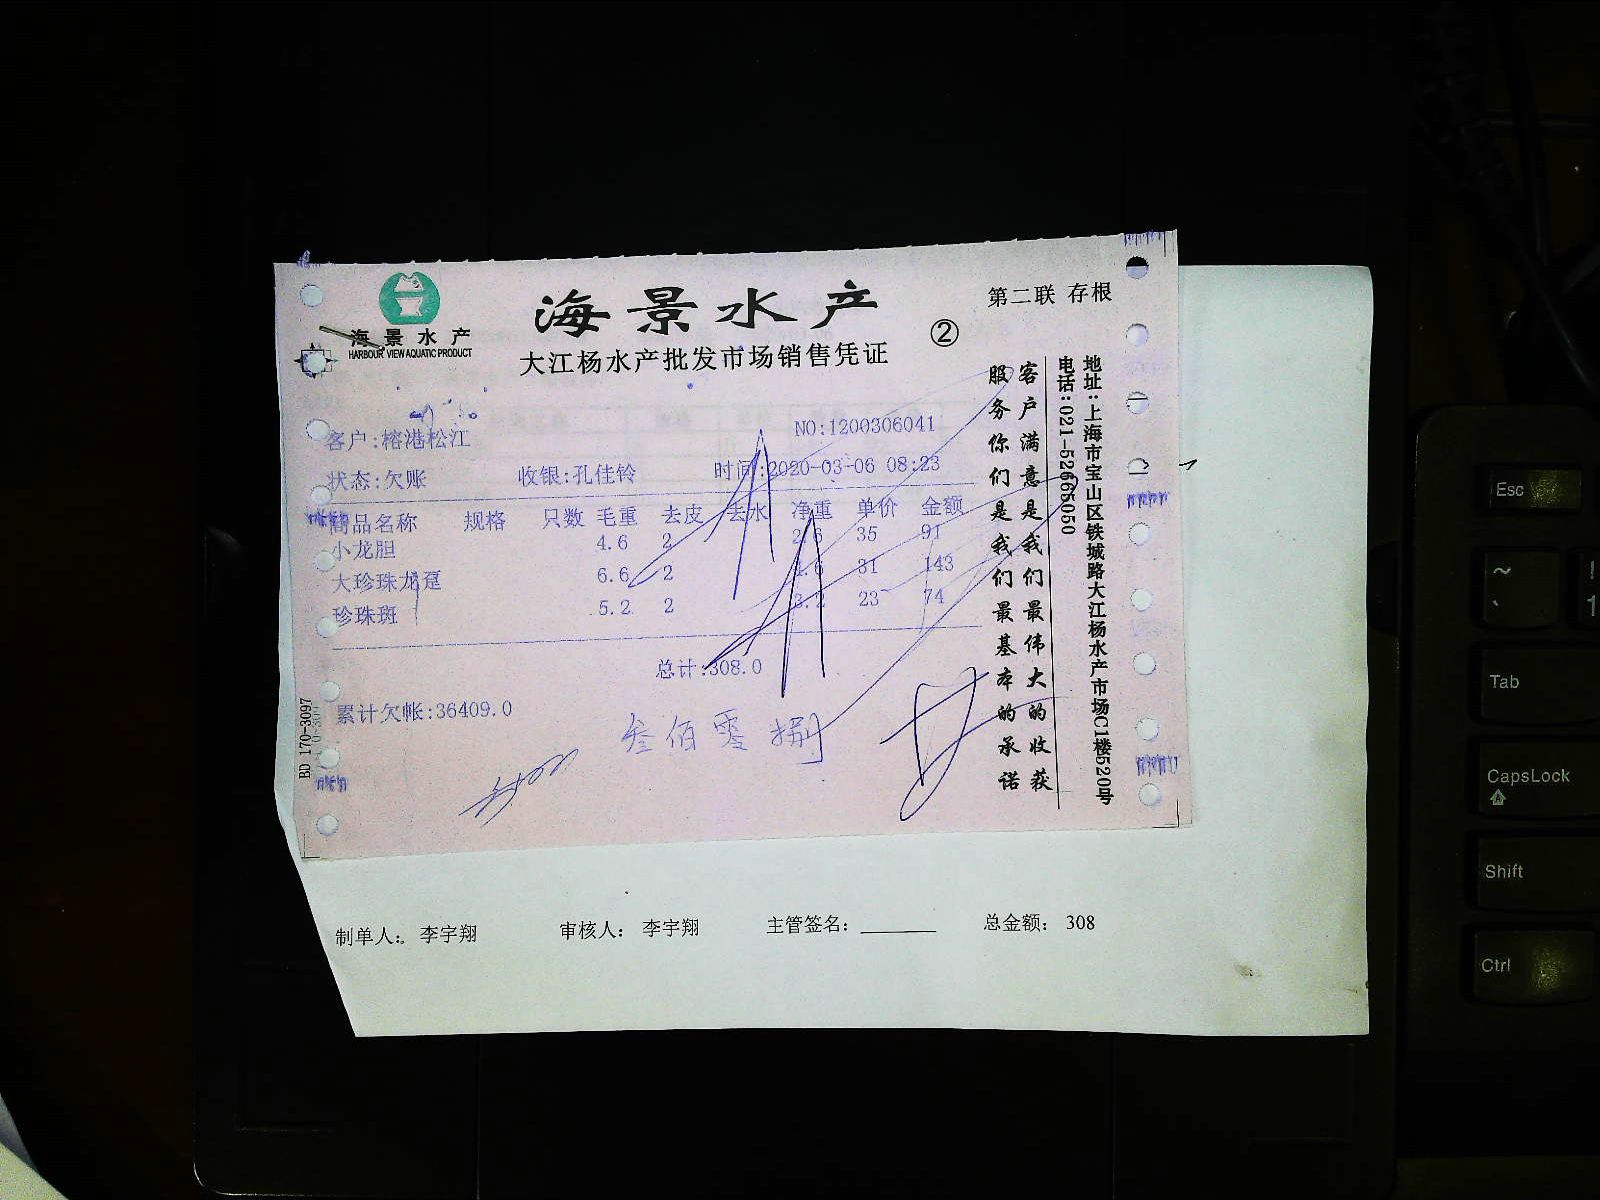 海景水产
HARBOUR VIEW AQUATIC PRODUCT
海景水产
大江杨水产批发市场销售凭证
②
第二联 存根
客户:榕港松江
NO:1200306041
状态:欠账 收银:孔佳铃 时间:2020-03-06 08:23
商品名称 规格 只数 毛重 去皮 去水 净重 单价 金额
小龙胆 4.6 2 2.6 35 91
大珍珠龙趸 6.6 2 4.6 31 143
珍珠斑 5.2 2 3.2 23 74
总计:308.0
累计欠帐:36409.0
叁佰零捌
客户满意是我们最伟大的收获
服务你们是我们最基本的承诺
地址:上海市宝山区铁城路大江杨水产市场C1楼520号
电话:021-52665050
BD 170-3097
制单人: 李宇翔 审核人: 李宇翔 主管签名: 总金额: 308
Esc
~
Tab
CapsLock
Shift
Ctrl